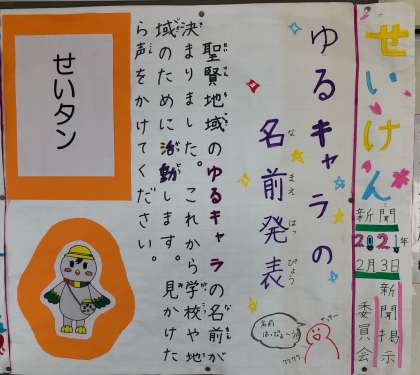 せいけん
新聞
2021年
2月3日
新聞掲示
委員会
ゆるキャラの
名前発表
なまえはっぴょう
聖賢地域のゆるキャラの名前が
決まりました。これから学校や地
域のために活動します。見かけた
ら声をかけてください。
せいタン
名前